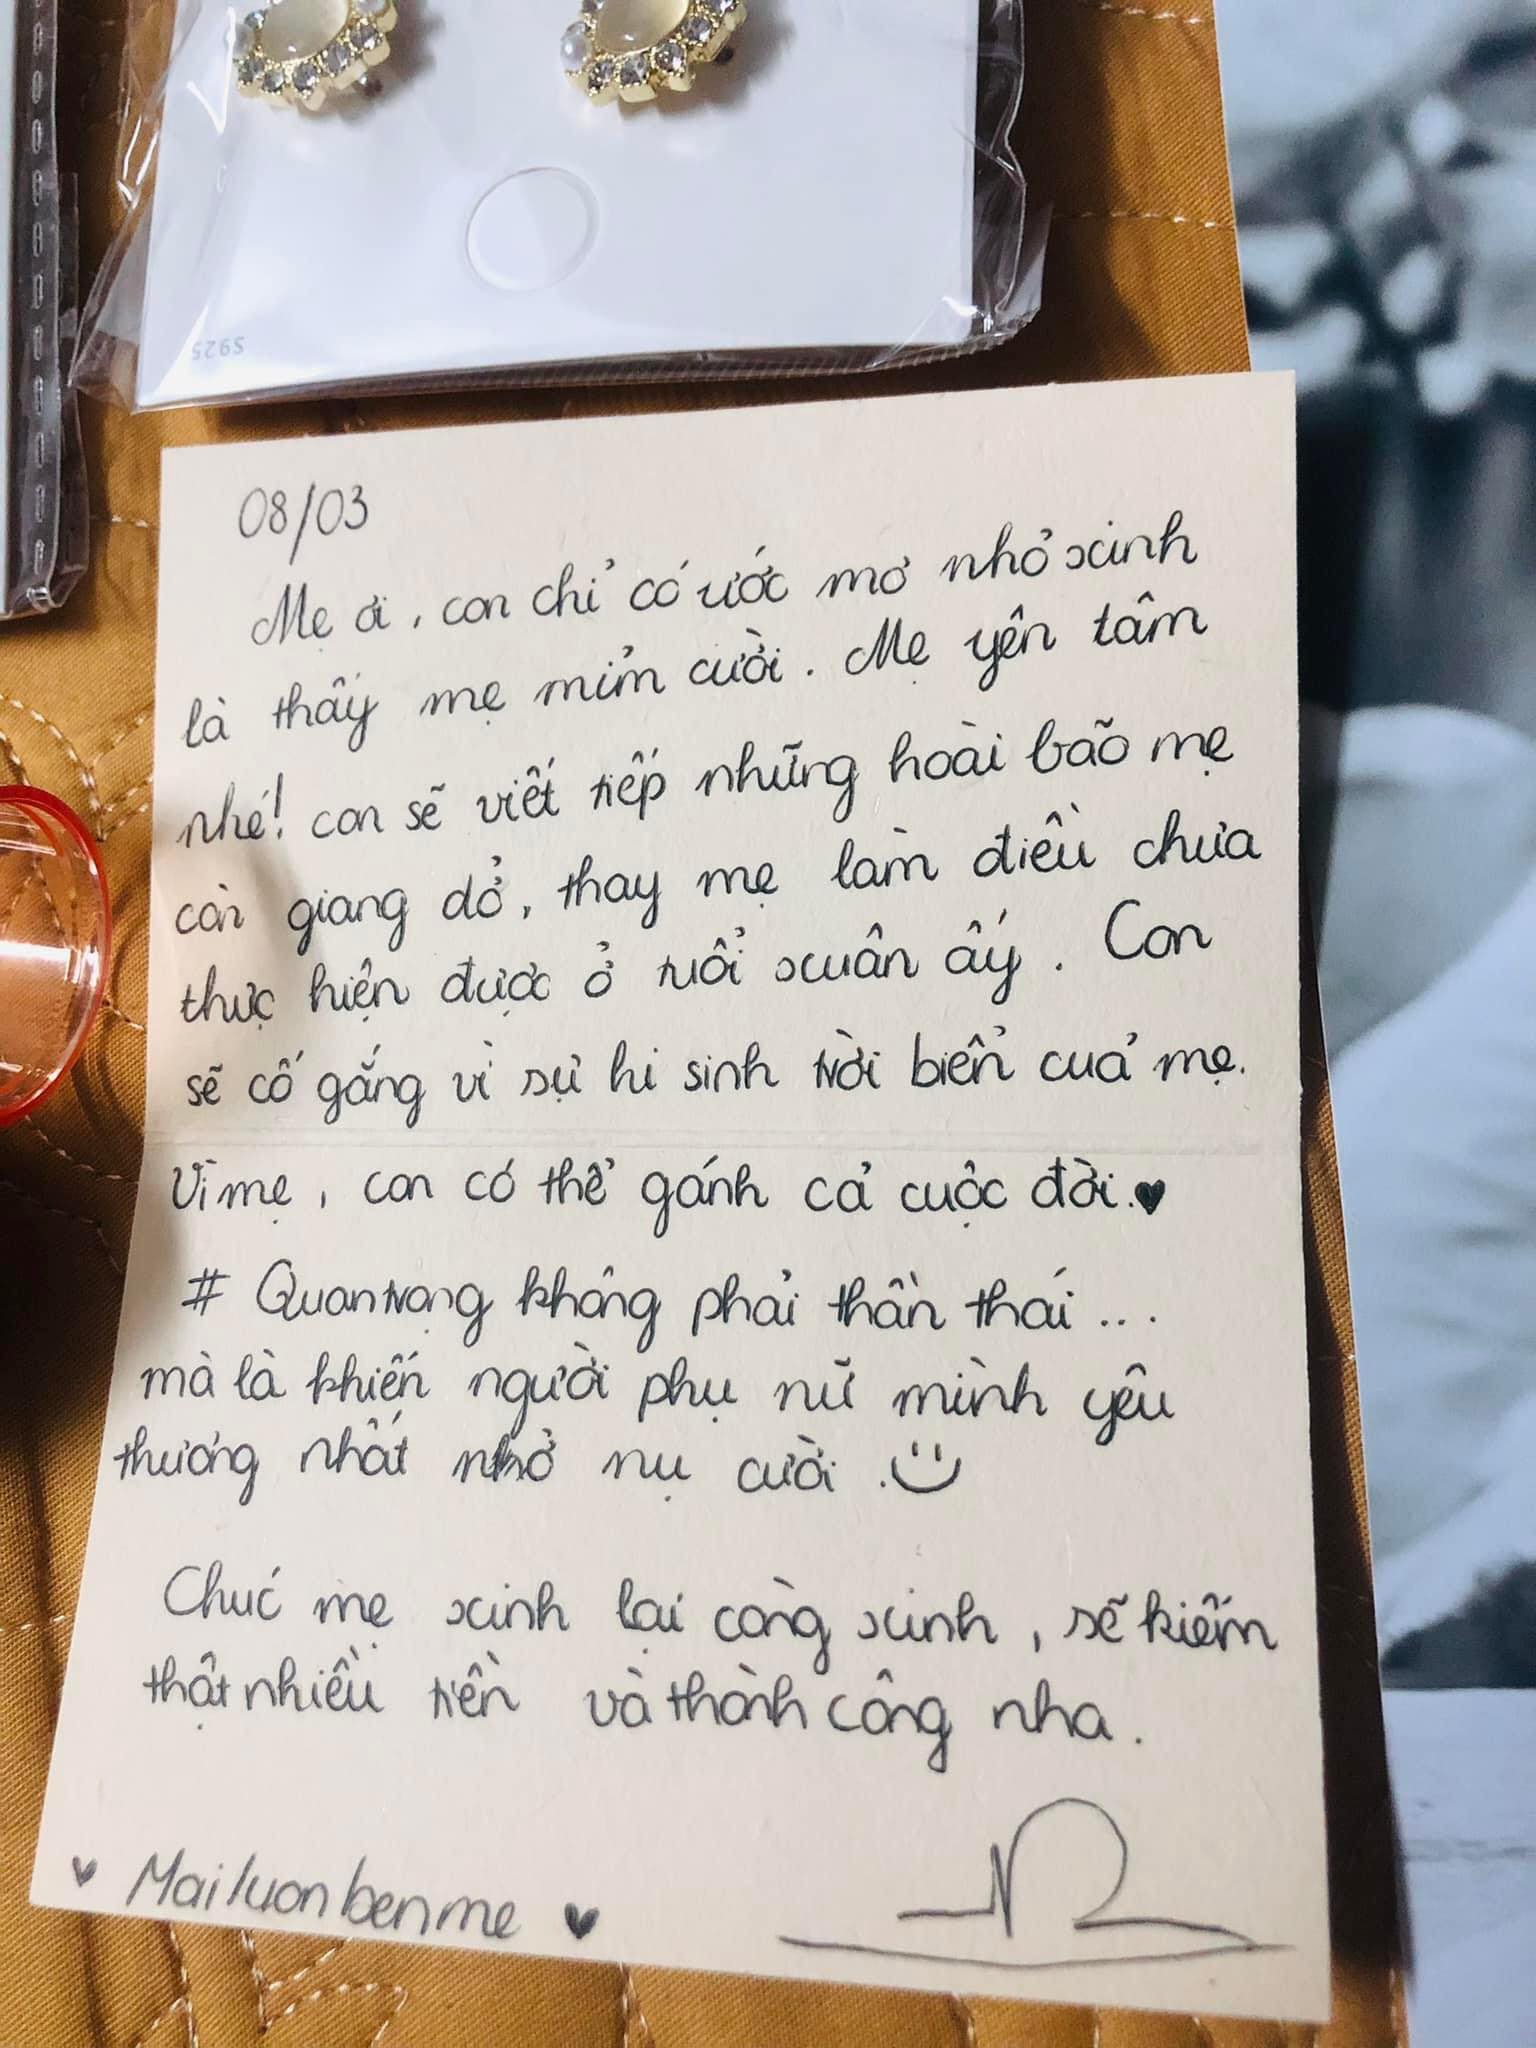 S925
08/03
Mẹ ơi, con chỉ có ước mơ nhỏ xinh
là thấy mẹ mỉm cười. Mẹ yên tâm
nhé! con sẽ viết tiếp những hoài bão mẹ
còn giang dở, thay mẹ làm điều chưa
thực hiện được ở tuổi xuân ấy. Con
sẽ cố gắng vì sự hi sinh trời biển của mẹ.
Vì mẹ, con có thể gánh cả cuộc đời.♥
# Quantrọng không phải thần thái...
mà là khiến người phụ nữ mình yêu
thương nhất nhở nụ cười.
Chúc mẹ xinh lại càng xinh, sẽ kiếm
thật nhiều tiền và thành công nha.
♥ Mailuonbenme ♥